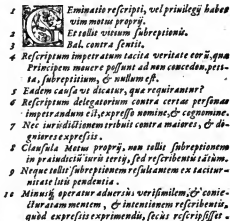 1 GEminatio rescripti, vel priuilegij habet
vim motus proprij.
2 Et tollit vitium subreptionis.
3 Bal. contra sentit.
4 Rescriptum impetratum tacita veritate eorũ, quæ
Principem mouere possunt ad non concedon, pets-
ta, subreptitium, & nullum est.
5 Eadem causa vt dicatur, quæ requirantur?
6 Rescriptum delegatorium contra certas personas
impetrandum est, expresso nomine, & cognomine.
7 Nec iurisdictionem tribuit contra maiores, & di-
gniores expressis.
8 Clausula Motus proprij, non tollit subreptionem
in præiudiciũ iuris tertij, sed rescribentis tãtum.
9 Neque tollit subreptionem resultantem ex tacitur-
nitate litis pendentia.
10 Minusq́; operatur aduersus verisimilem, & conie-
cturatam mentem, & intentionem rescribentis,
quòd expressis exprimendis, secus rescripsisset.